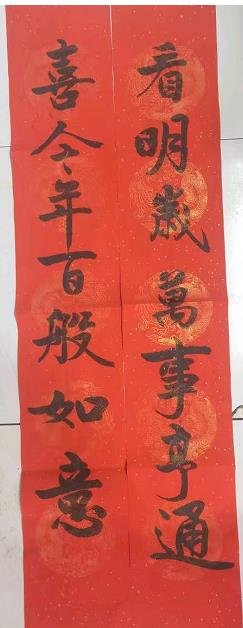 看明歲萬事亨通
喜今年百般如意